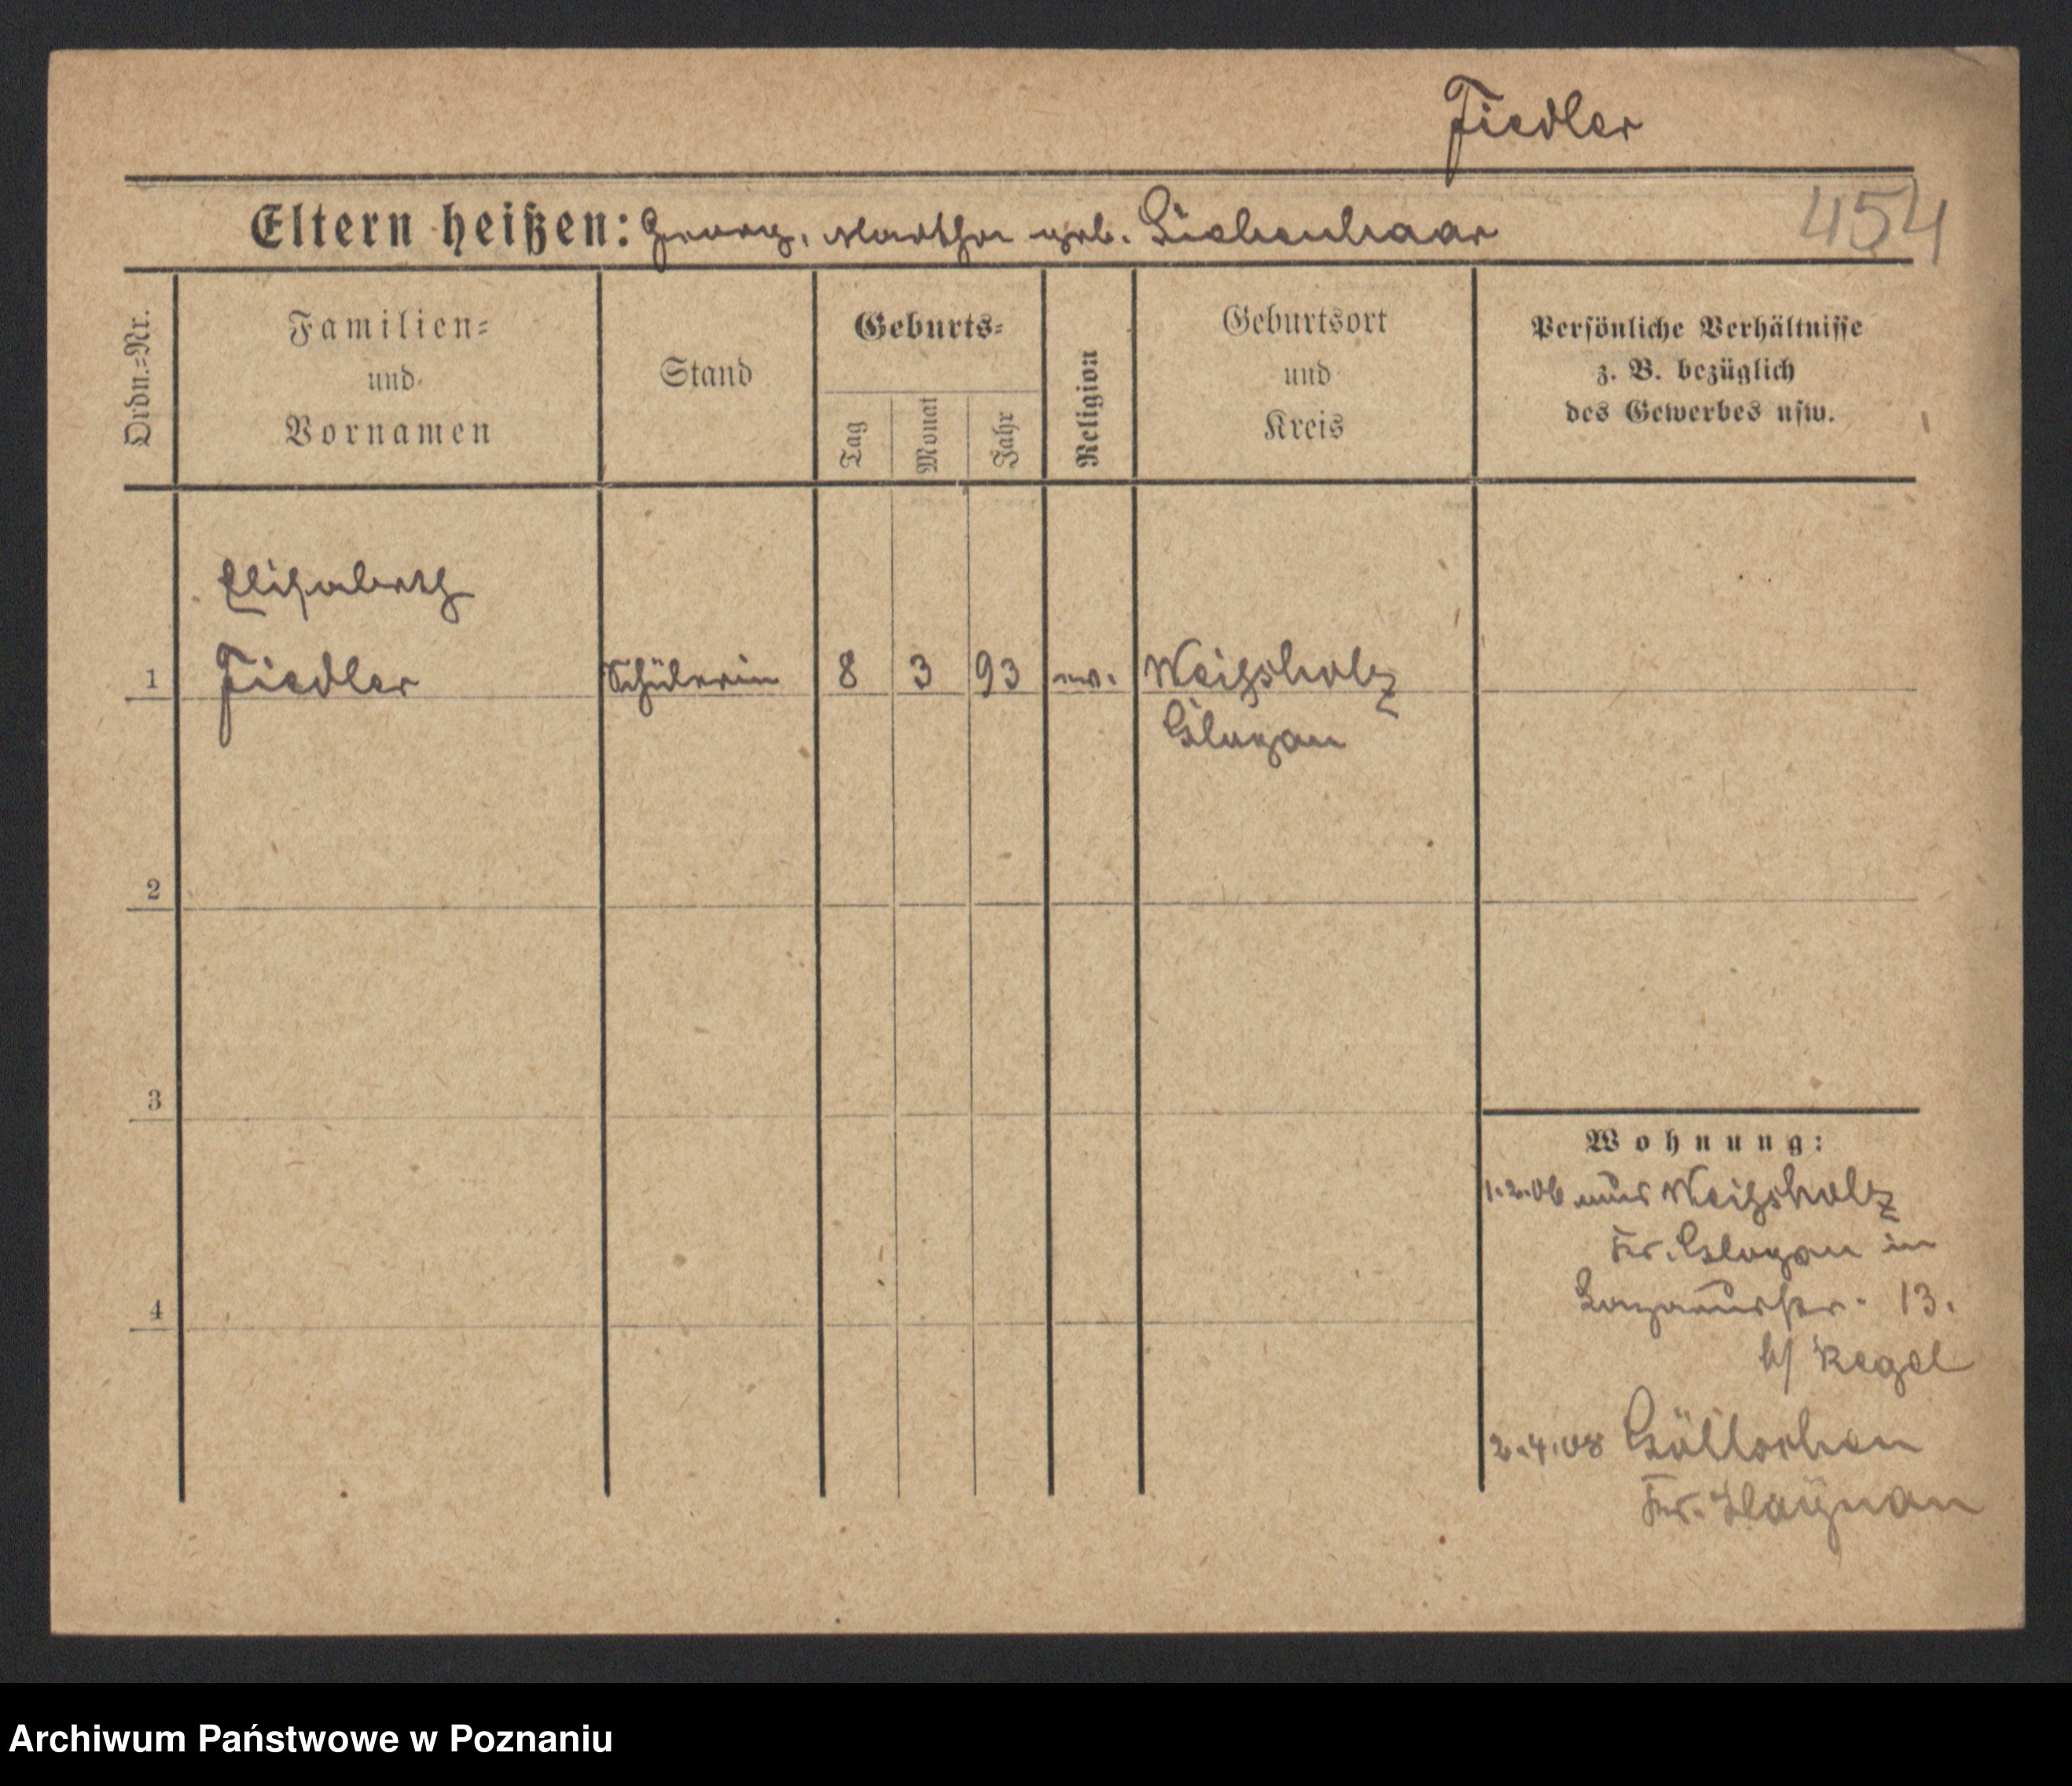 Fiedler
454
Eltern heißen: Georg, Martha geb. Siebenhaar
Ordn.=Nr.
Familien=
und
Vornamen
Stand
Geburts=
Tag
Monat
Jahr
Religion
Geburtsort
und
Kreis
Persönliche Verhältnisse
z. B. bezüglich
des Gewerbes usw.
Elisabeth
1 Fiedler Schülerin 8 3 93 ev. Weißholz
Glogau
2
3
4
Wohnung:
1.2.06 aus Weißholz
Kr. Glogau in
Lazarusstr. 13.
b/ Regel
2.4.08 Göllschau
Kr. Haynau
Archiwum Państwowe w Poznaniu